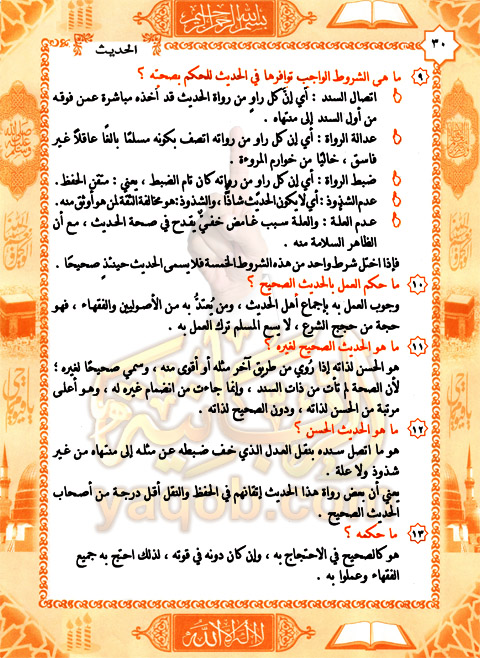 بسم الله الرحمن الرحيم
٣٠
الحديث
٩ ما هي الشروط الواجب توافرها في الحديث للحكم بصحته ؟
اتصال السند : أي إن كل راوٍ من رواة الحديث قد أخذه مباشرة عمن فوقه
من أول السند إلى منتهاه .
عدالة الرواة : أي إن كل راو من رواته اتصف بكونه مسلمًا بالغًا عاقلاً غير
فاسق ، خاليًا من خوارم المروءة .
ضبط الرواة : أي إن كل راو من رواته كان تام الضبط ، يعني : متقن الحفظ .
عدم الشذوذ : أي لا يكون الحديث شاذًا ، والشذوذ : هو مخالفة الثقة لمن هو أوثق منه .
عدم العلة : والعلة سبب غامض خفي يقدح في صحة الحديث ، مع أن
الظاهر السلامة منه .
فإذا اختل شرط واحد من هذه الشروط الخمسة فلا يسمى الحديث حينئذٍ صحيحًا .
١٠ ما حكم العمل بالحديث الصحيح ؟
وجوب العمل به بإجماع أهل الحديث ، ومن يُعتدُّ به من الأصوليين والفقهاء ، فهو
حجة من حجج الشرع ، لا يسع المسلم ترك العمل به .
١١ ما هو الحديث الصحيح لغيره ؟
هو الحسن لذاته إذا رُوي من طريق آخر مثله أو أقوى منه ، وسمي صحيحًا لغيره ؛
لأن الصحة لم تأت من ذات السند ، وإنما جاءت من انضمام غيره له ، وهو أعلى
مرتبة من الحسن لذاته ، ودون الصحيح لذاته .
١٢ ما هو الحديث الحسن ؟
هو ما اتصل سنده بنقل العدل الذي خف ضبطه عن مثله إلى منتهاه من غير
شذوذ ولا علة .
يعني أن بعض رواة هذا الحديث إتقانهم في الحفظ والنقل أقل درجة من أصحاب
الحديث الصحيح .
١٣ ما حكمه ؟
هو كالصحيح في الاحتجاج به ، وإن كان دونه في قوته ، لذلك احتج به جميع
الفقهاء وعملوا به .
yaqob.com
لا إله إلا الله